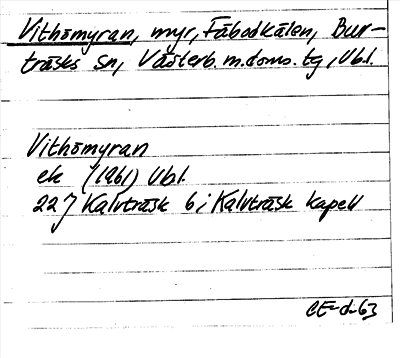 Vithomyran, myr, Fäbodkälen, Bur-
träsks sn, Västerb. m. doms. tg, Vbl.
Vithomyran
ek (1961) Vbl.
22 J Kalvträsk b i Kalvträsk kapell
CE-d-63